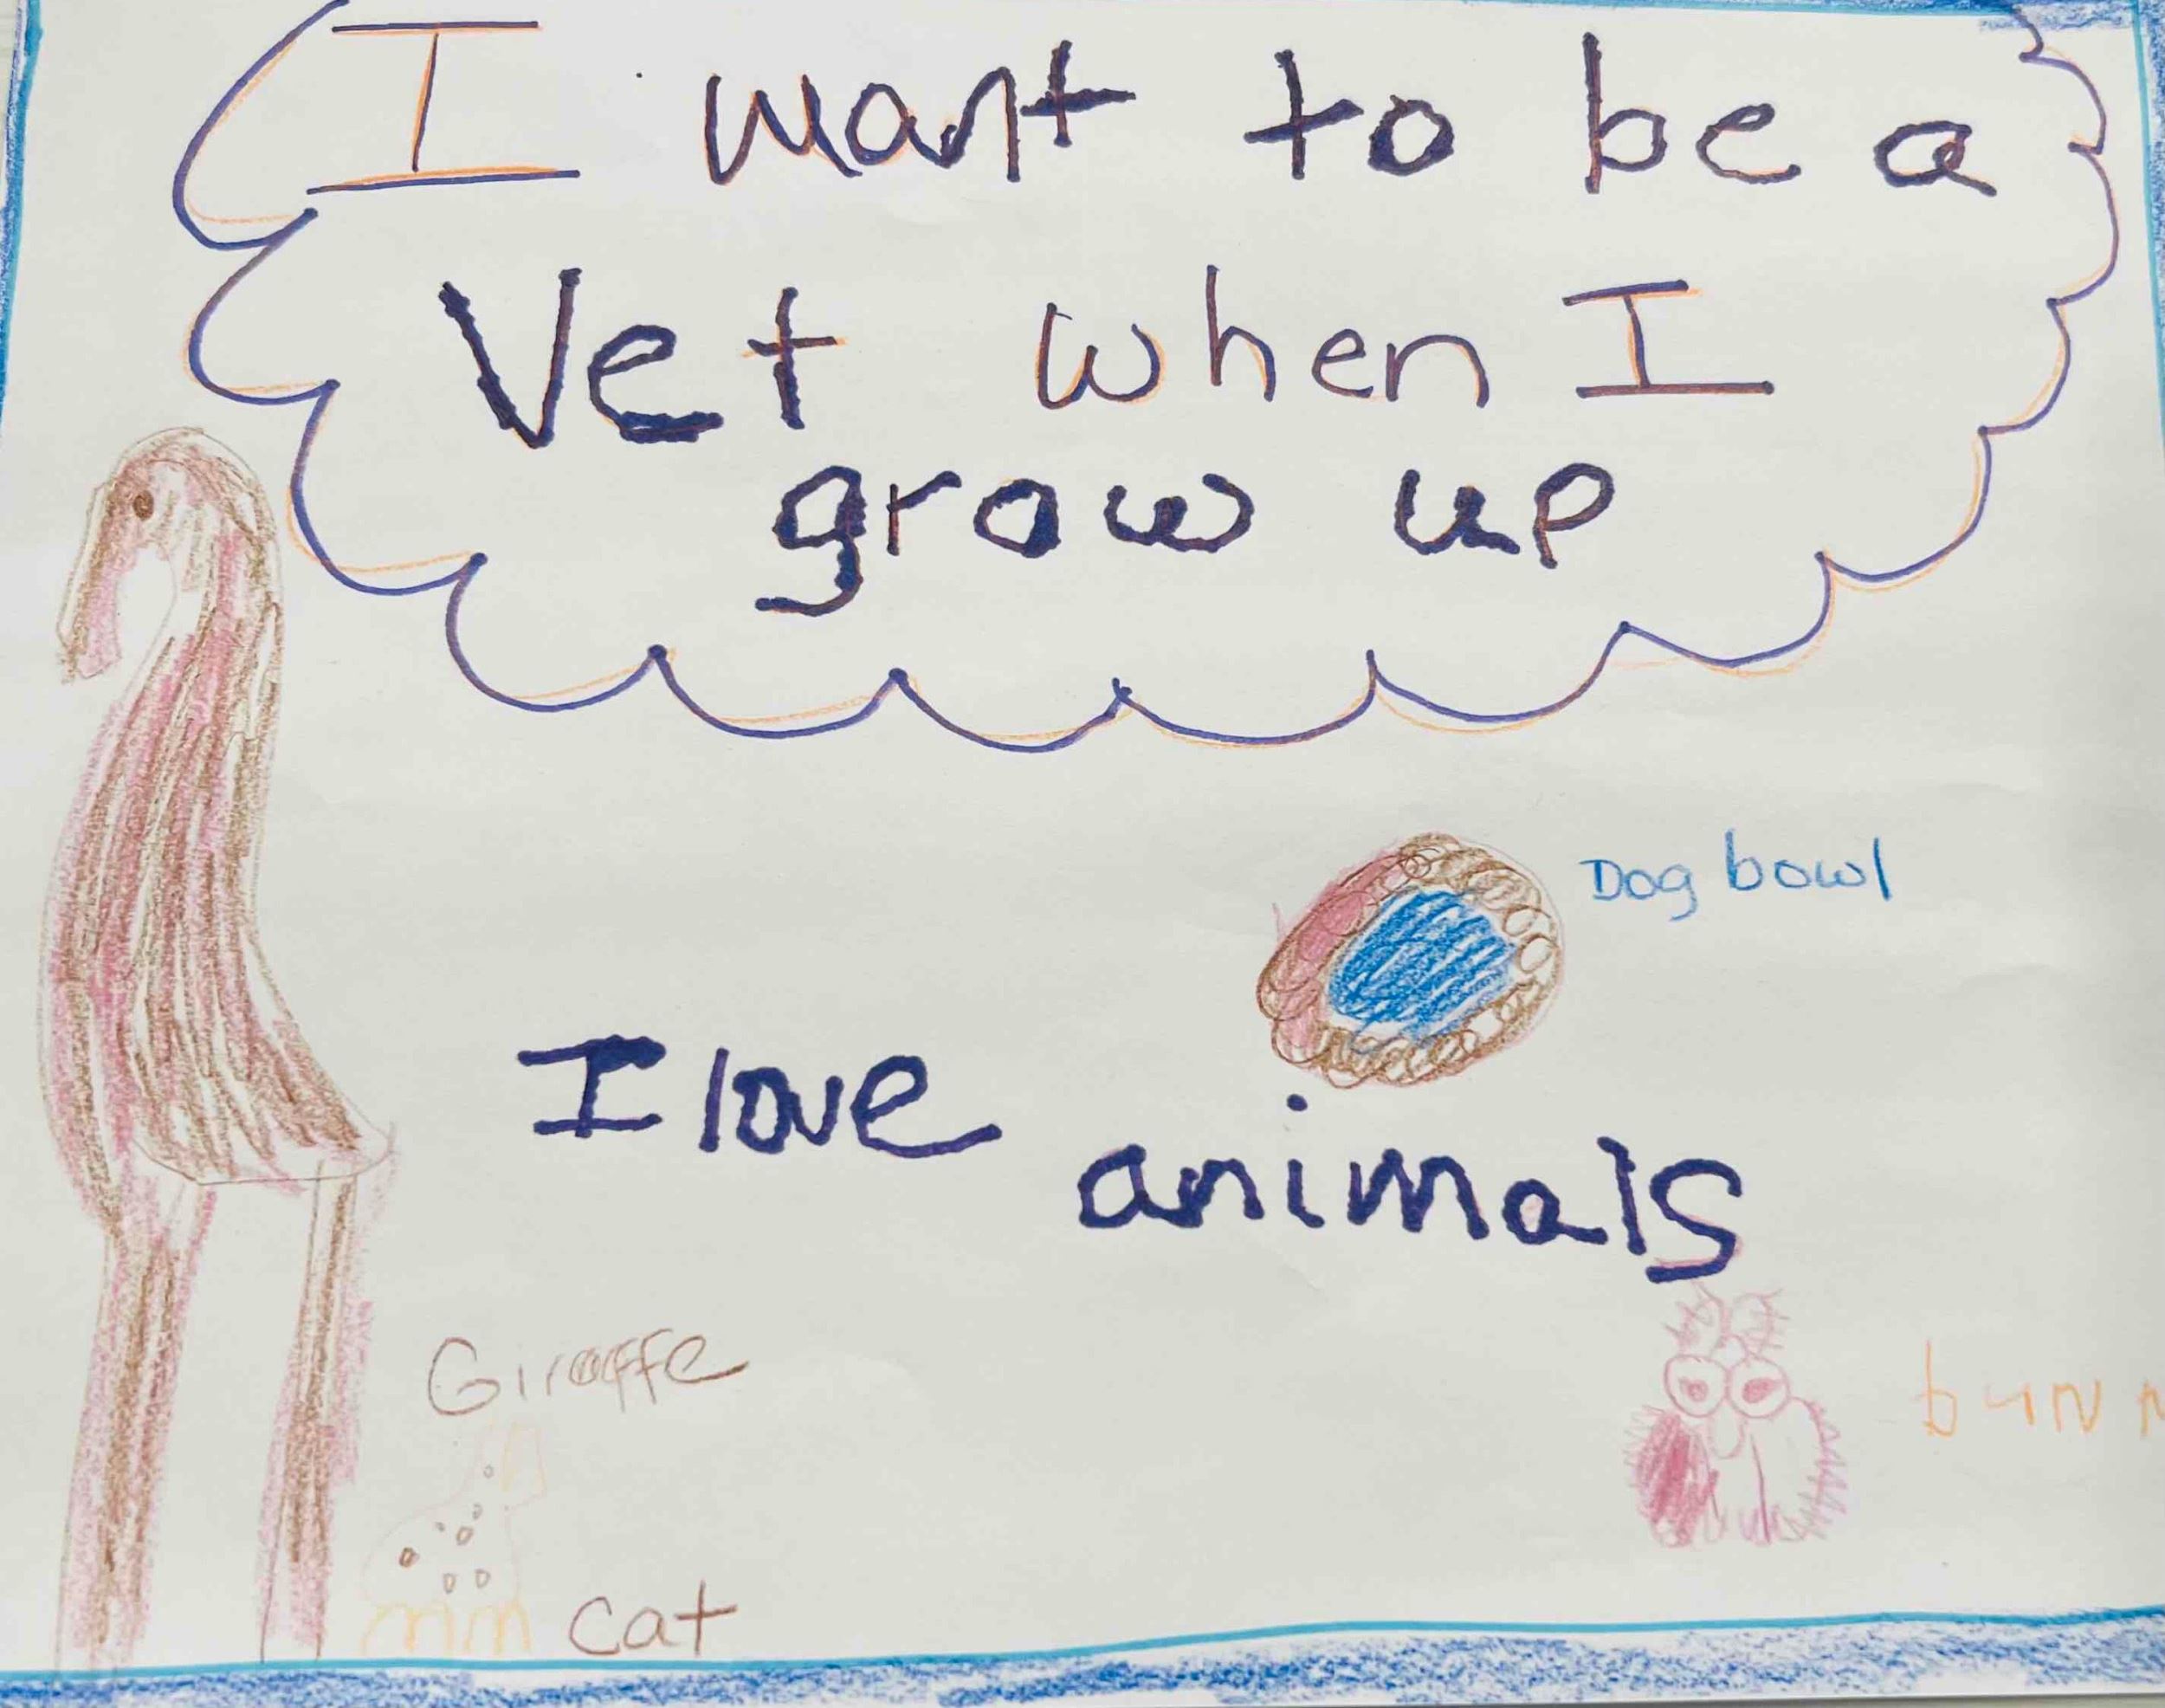 I want to be a
Vet when I
grow up
Dog bowl
I love animals
Giraffe
cat